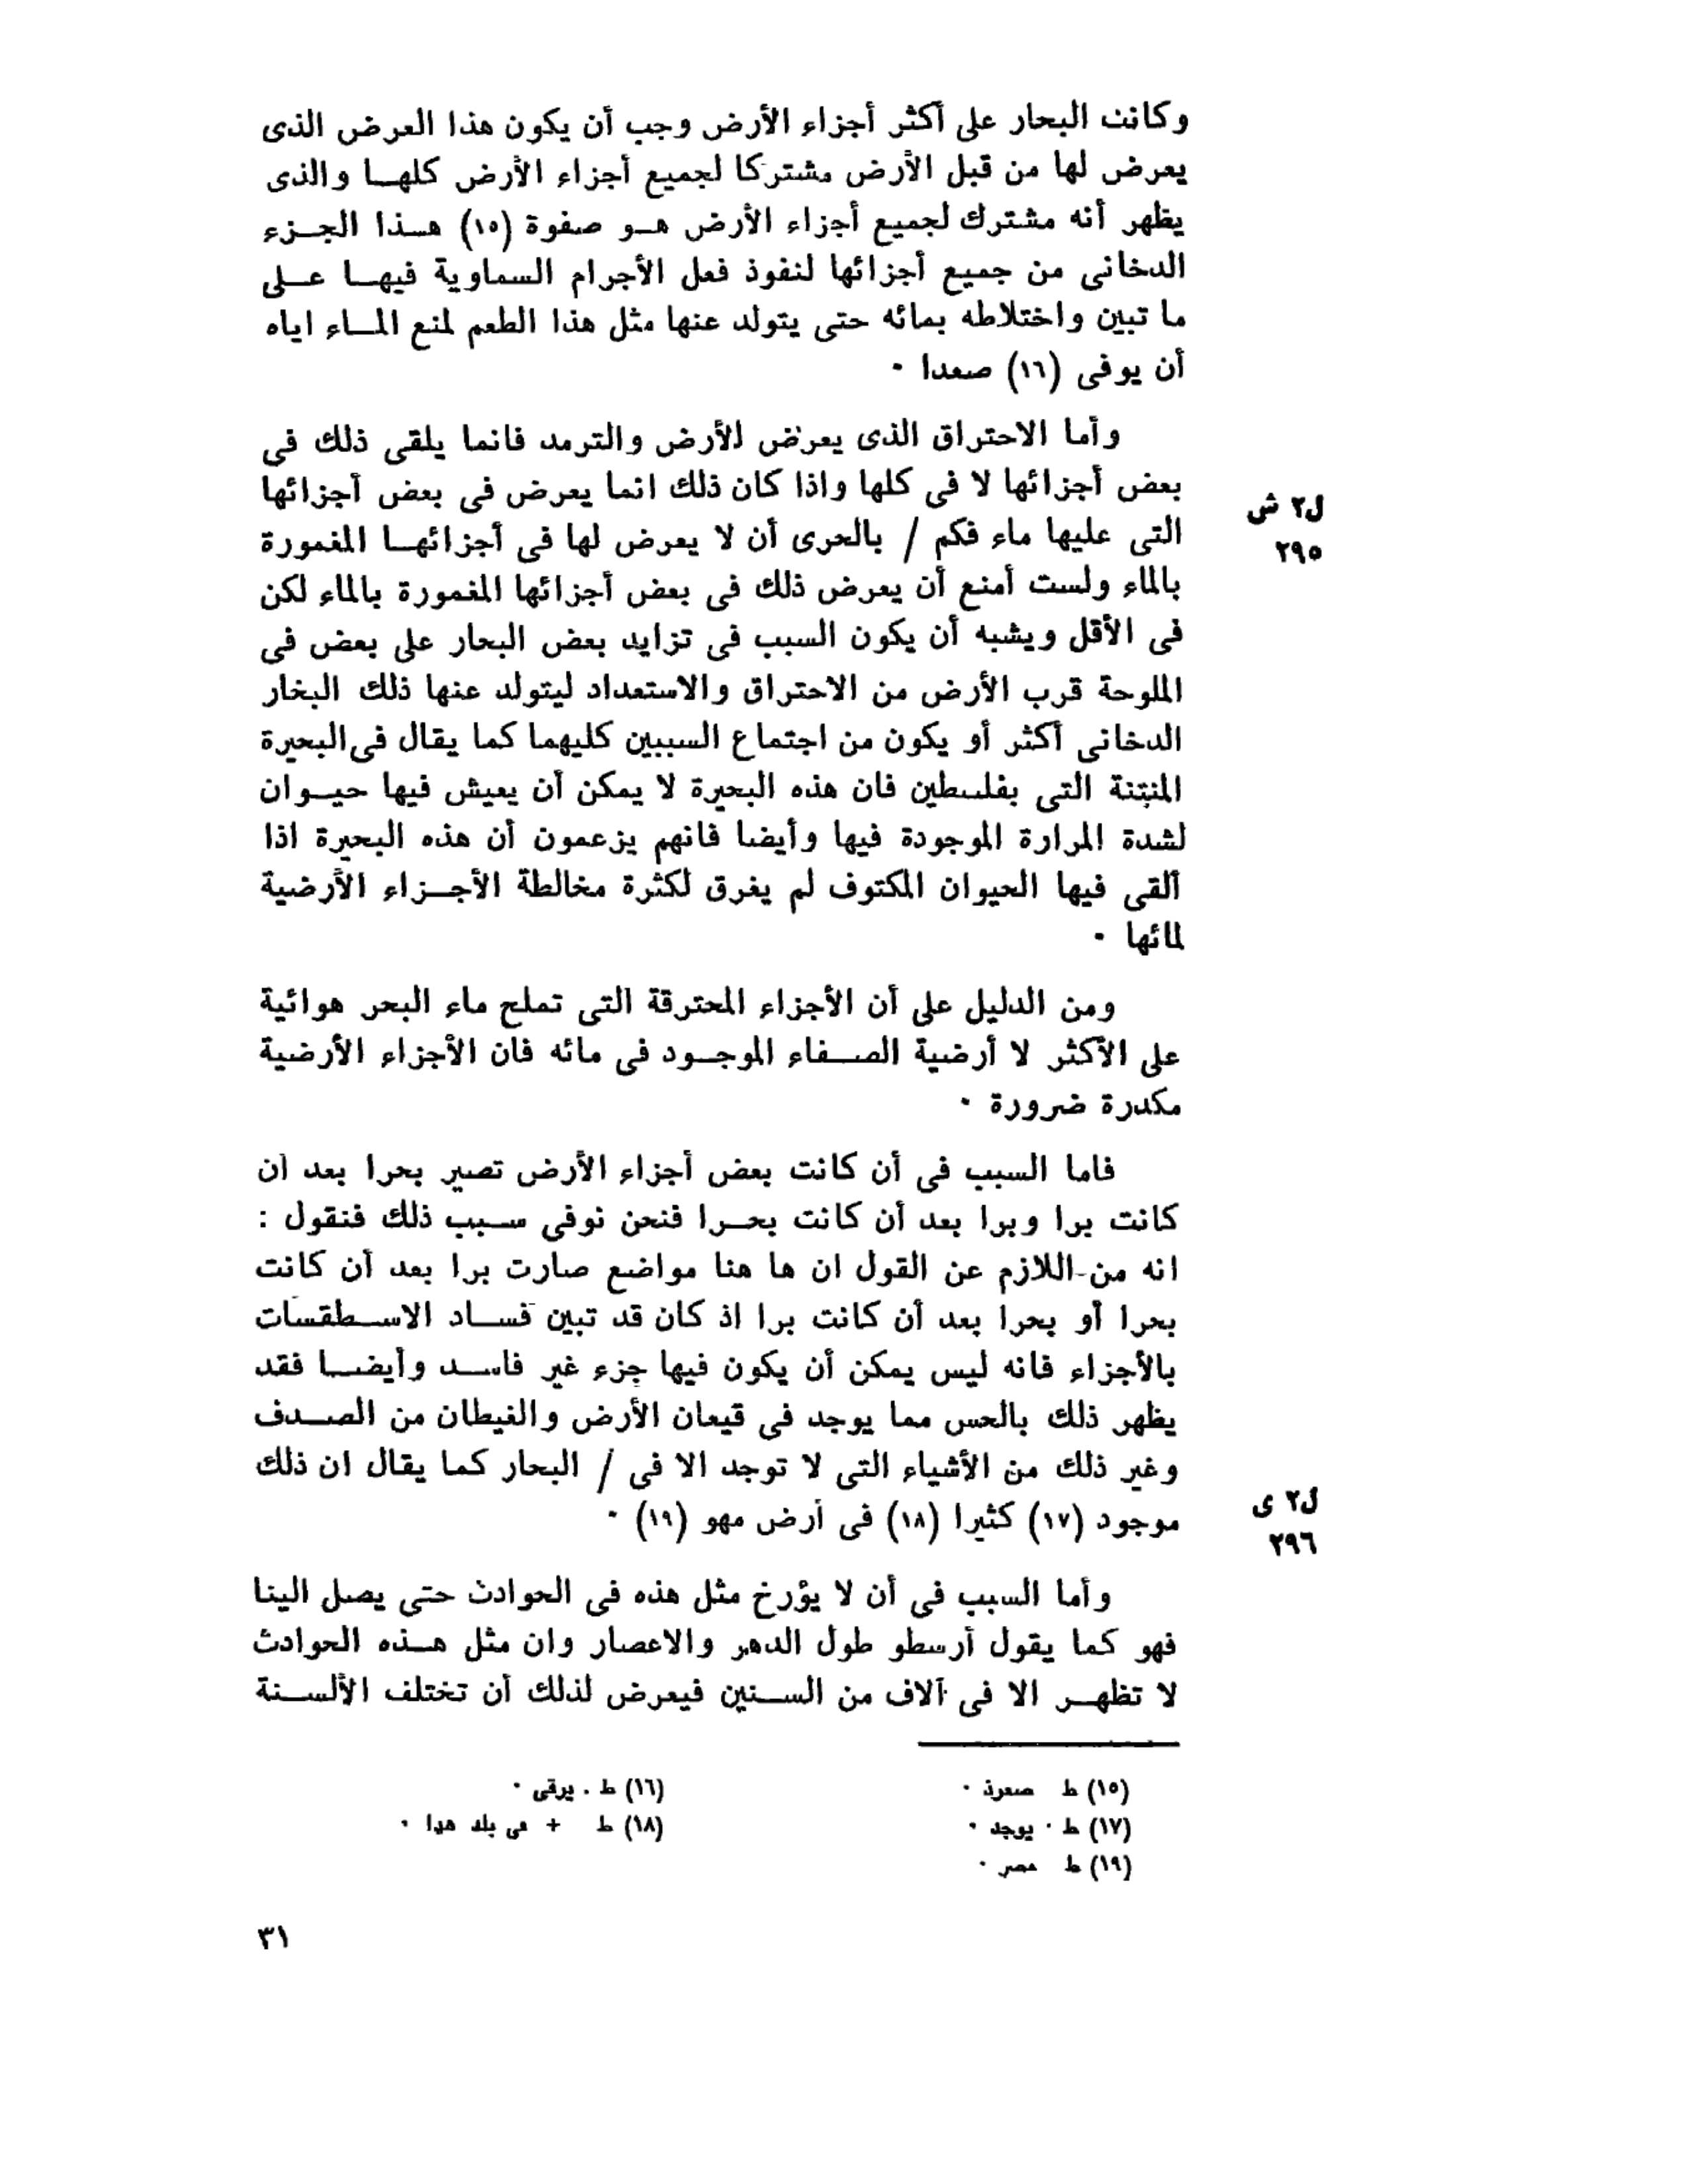 وكانت البحار على أكثر أجزاء الأرض وجب أن يكون هذا العرض الذى
يعرض لها من قبل الأرض مشتركا لجميع أجزاء الأرض كلهــا والذى
يظهر أنه مشترك لجميع أجزاء الأرض هــو صفوة (١٥) هــذا الجــزء
الدخانى من جميع أجزائها لنفوذ فعل الأجرام السماوية فيهــا عــلى
ما تبين واختلاطه بمائه حتى يتولد عنها مثل هذا الطعم لمنع المــاء اياه
أن يوفى (١٦) صعدا ٠
وأما الاحتراق الذى يعرض للأرض والترمد فانما يلقى ذلك فى
بعض أجزائها لا فى كلها واذا كان ذلك انما يعرض فى بعض أجزائها
التى عليها ماء فكم / بالحرى أن لا يعرض لها فى أجزائهــا المغمورة
ل٢ ش
٢٩٥
بالماء ولست أمنع أن يعرض ذلك فى بعض أجزائها المغمورة بالماء لكن
فى الأقل ويشبه أن يكون السبب فى تزايد بعض البحار على بعض فى
الملوحة قرب الأرض من الاحتراق والاستعداد ليتولد عنها ذلك البخار
الدخانى أكثر أو يكون من اجتماع السببين كليهما كما يقال فى البحيرة
المنتنة التى بفلسطين فان هذه البحيرة لا يمكن أن يعيش فيها حيــوان
لشدة المرارة الموجودة فيها وأيضا فانهم يزعمون أن هذه البحيرة اذا
ألقى فيها الحيوان المكتوف لم يغرق لكثرة مخالطة الأجــزاء الأرضية
لمائها ٠
ومن الدليل على أن الأجزاء المحترقة التى تملح ماء البحر هوائية
على الأكثر لا أرضية الصــفاء الموجــود فى مائه فان الأجزاء الأرضية
مكدرة ضرورة ٠
فاما السبب فى أن كانت بعض أجزاء الأرض تصير بحرا بعد أن
كانت برا وبرا بعد أن كانت بحــرا فنحن نوفى ســبب ذلك فنقول :
انه من اللازم عن القول ان ها هنا مواضع صارت برا بعد أن كانت
بحرا أو بحرا بعد أن كانت برا اذ كان قد تبين فســاد الاســطقسات
بالأجزاء فانه ليس يمكن أن يكون فيها جزء غير فاســد وأيضــا فقد
يظهر ذلك بالحس مما يوجد فى قيعان الأرض والغيطان من الصــدف
وغير ذلك من الأشياء التى لا توجد الا فى / البحار كما يقال ان ذلك
ل٢ ى
٢٩٦
موجود (١٧) كثيرا (١٨) فى أرض مهو (١٩) ٠
وأما السبب فى أن لا يؤرخ مثل هذه فى الحوادث حتى يصل الينا
فهو كما يقول أرسطو طول الدهر والاعصار وان مثل هــذه الحوادث
لا تظهــر الا فى آلاف من الســنين فيعرض لذلك أن تختلف الألســنة
(١٥) ط صعرذ ٠
(١٦) ط . يرقى ٠
(١٧) ط ٠ يوجد ٠
(١٨) ط + فى بلد هدا ٠
(١٩) ط مصر ٠
٣١